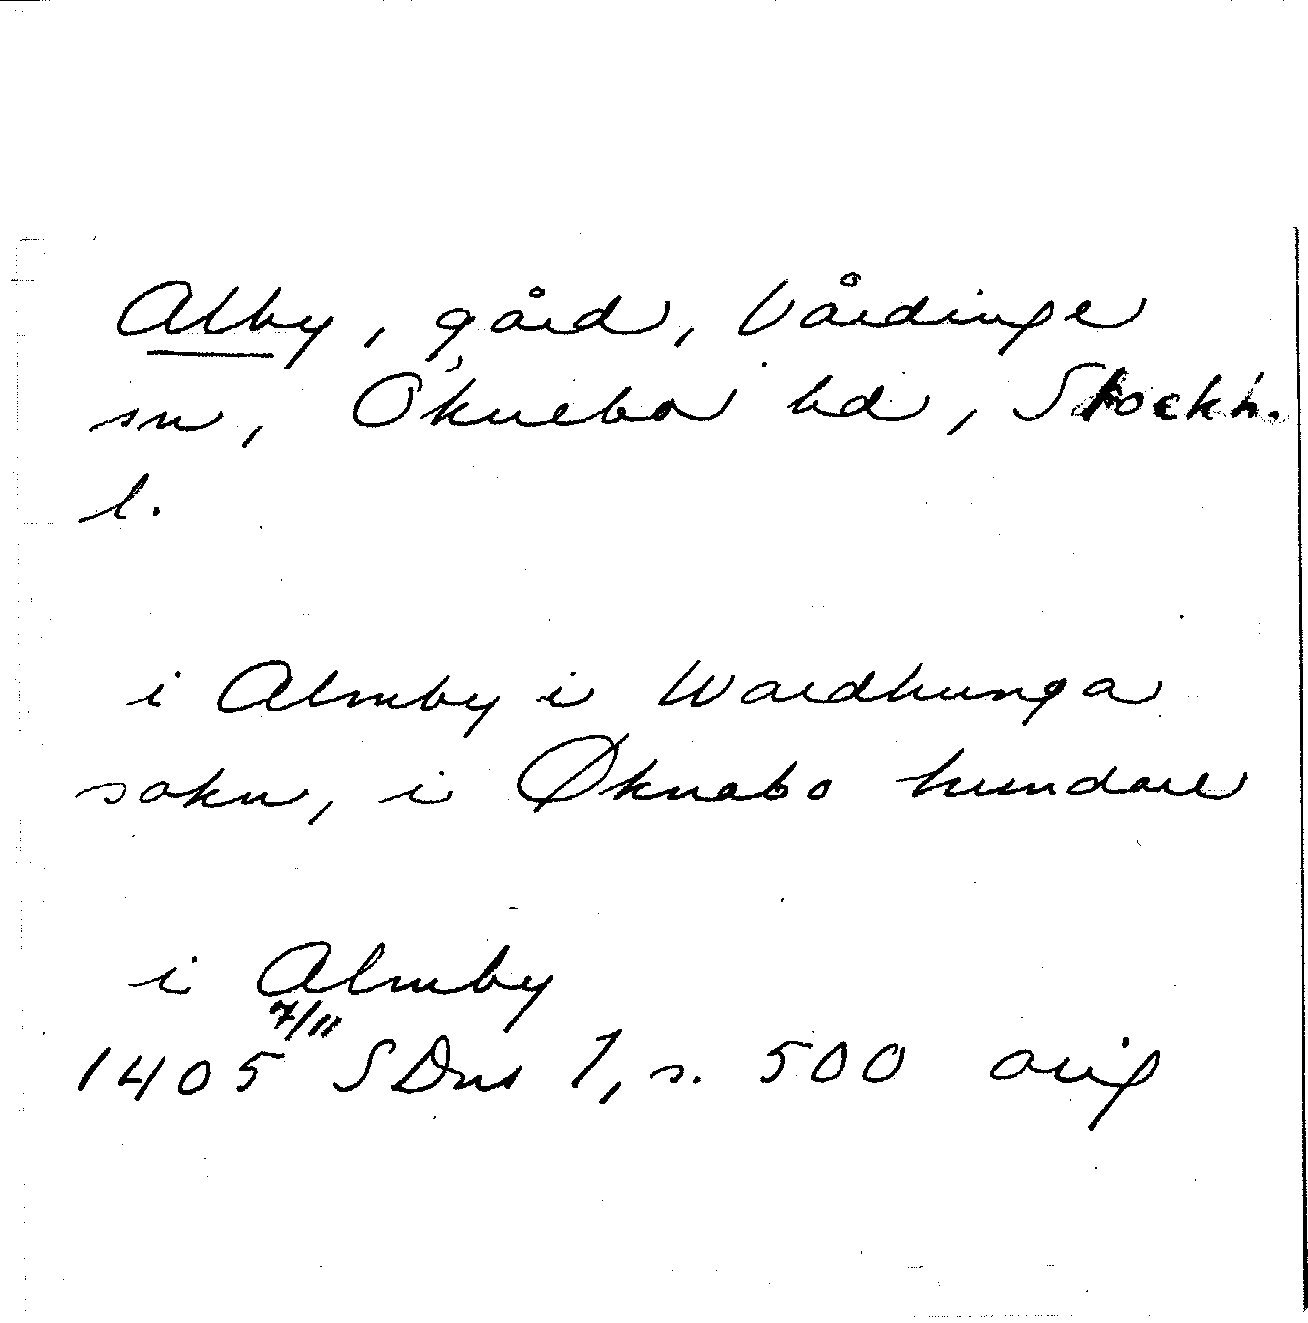 Alby, gård, Vårdinge
sn, Öknebo hd, Stockh.
l.
i Almby i Wardhunga
sokn, i Øknabo hundare
i Almby
1405 7/11 SDns 1, s. 500 orig